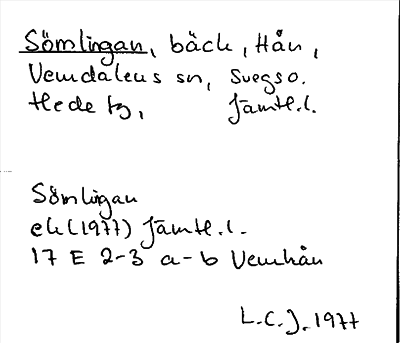 Sömlingan, bäck, Hån,
Vemdalens sn, Svegs o.
Hede tg, Jämtl.l.
Sömlingan
ek (1977) Jämtl.l.
17 E 2-3 a-b Vemhån
L.C.J. 1977